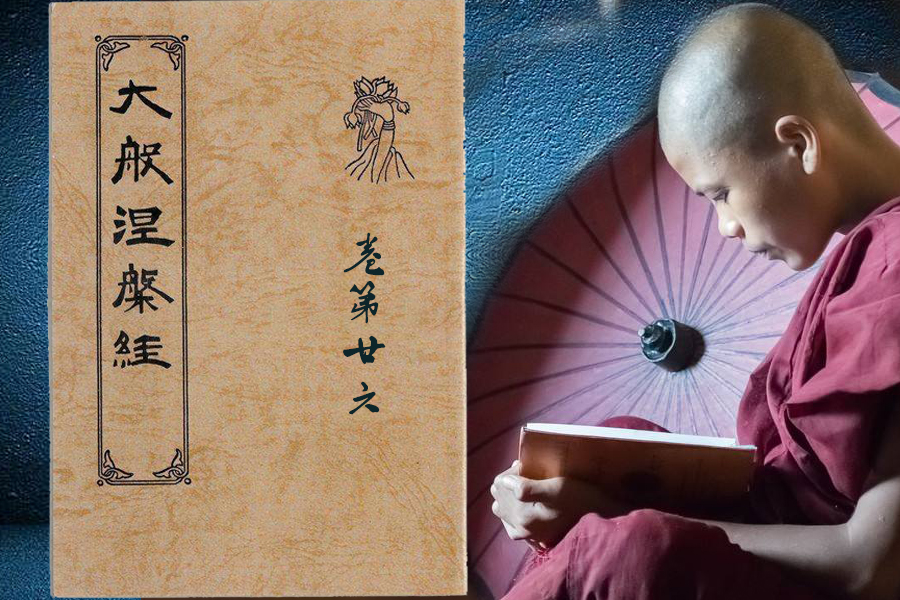 大般涅槃經
卷第廿六